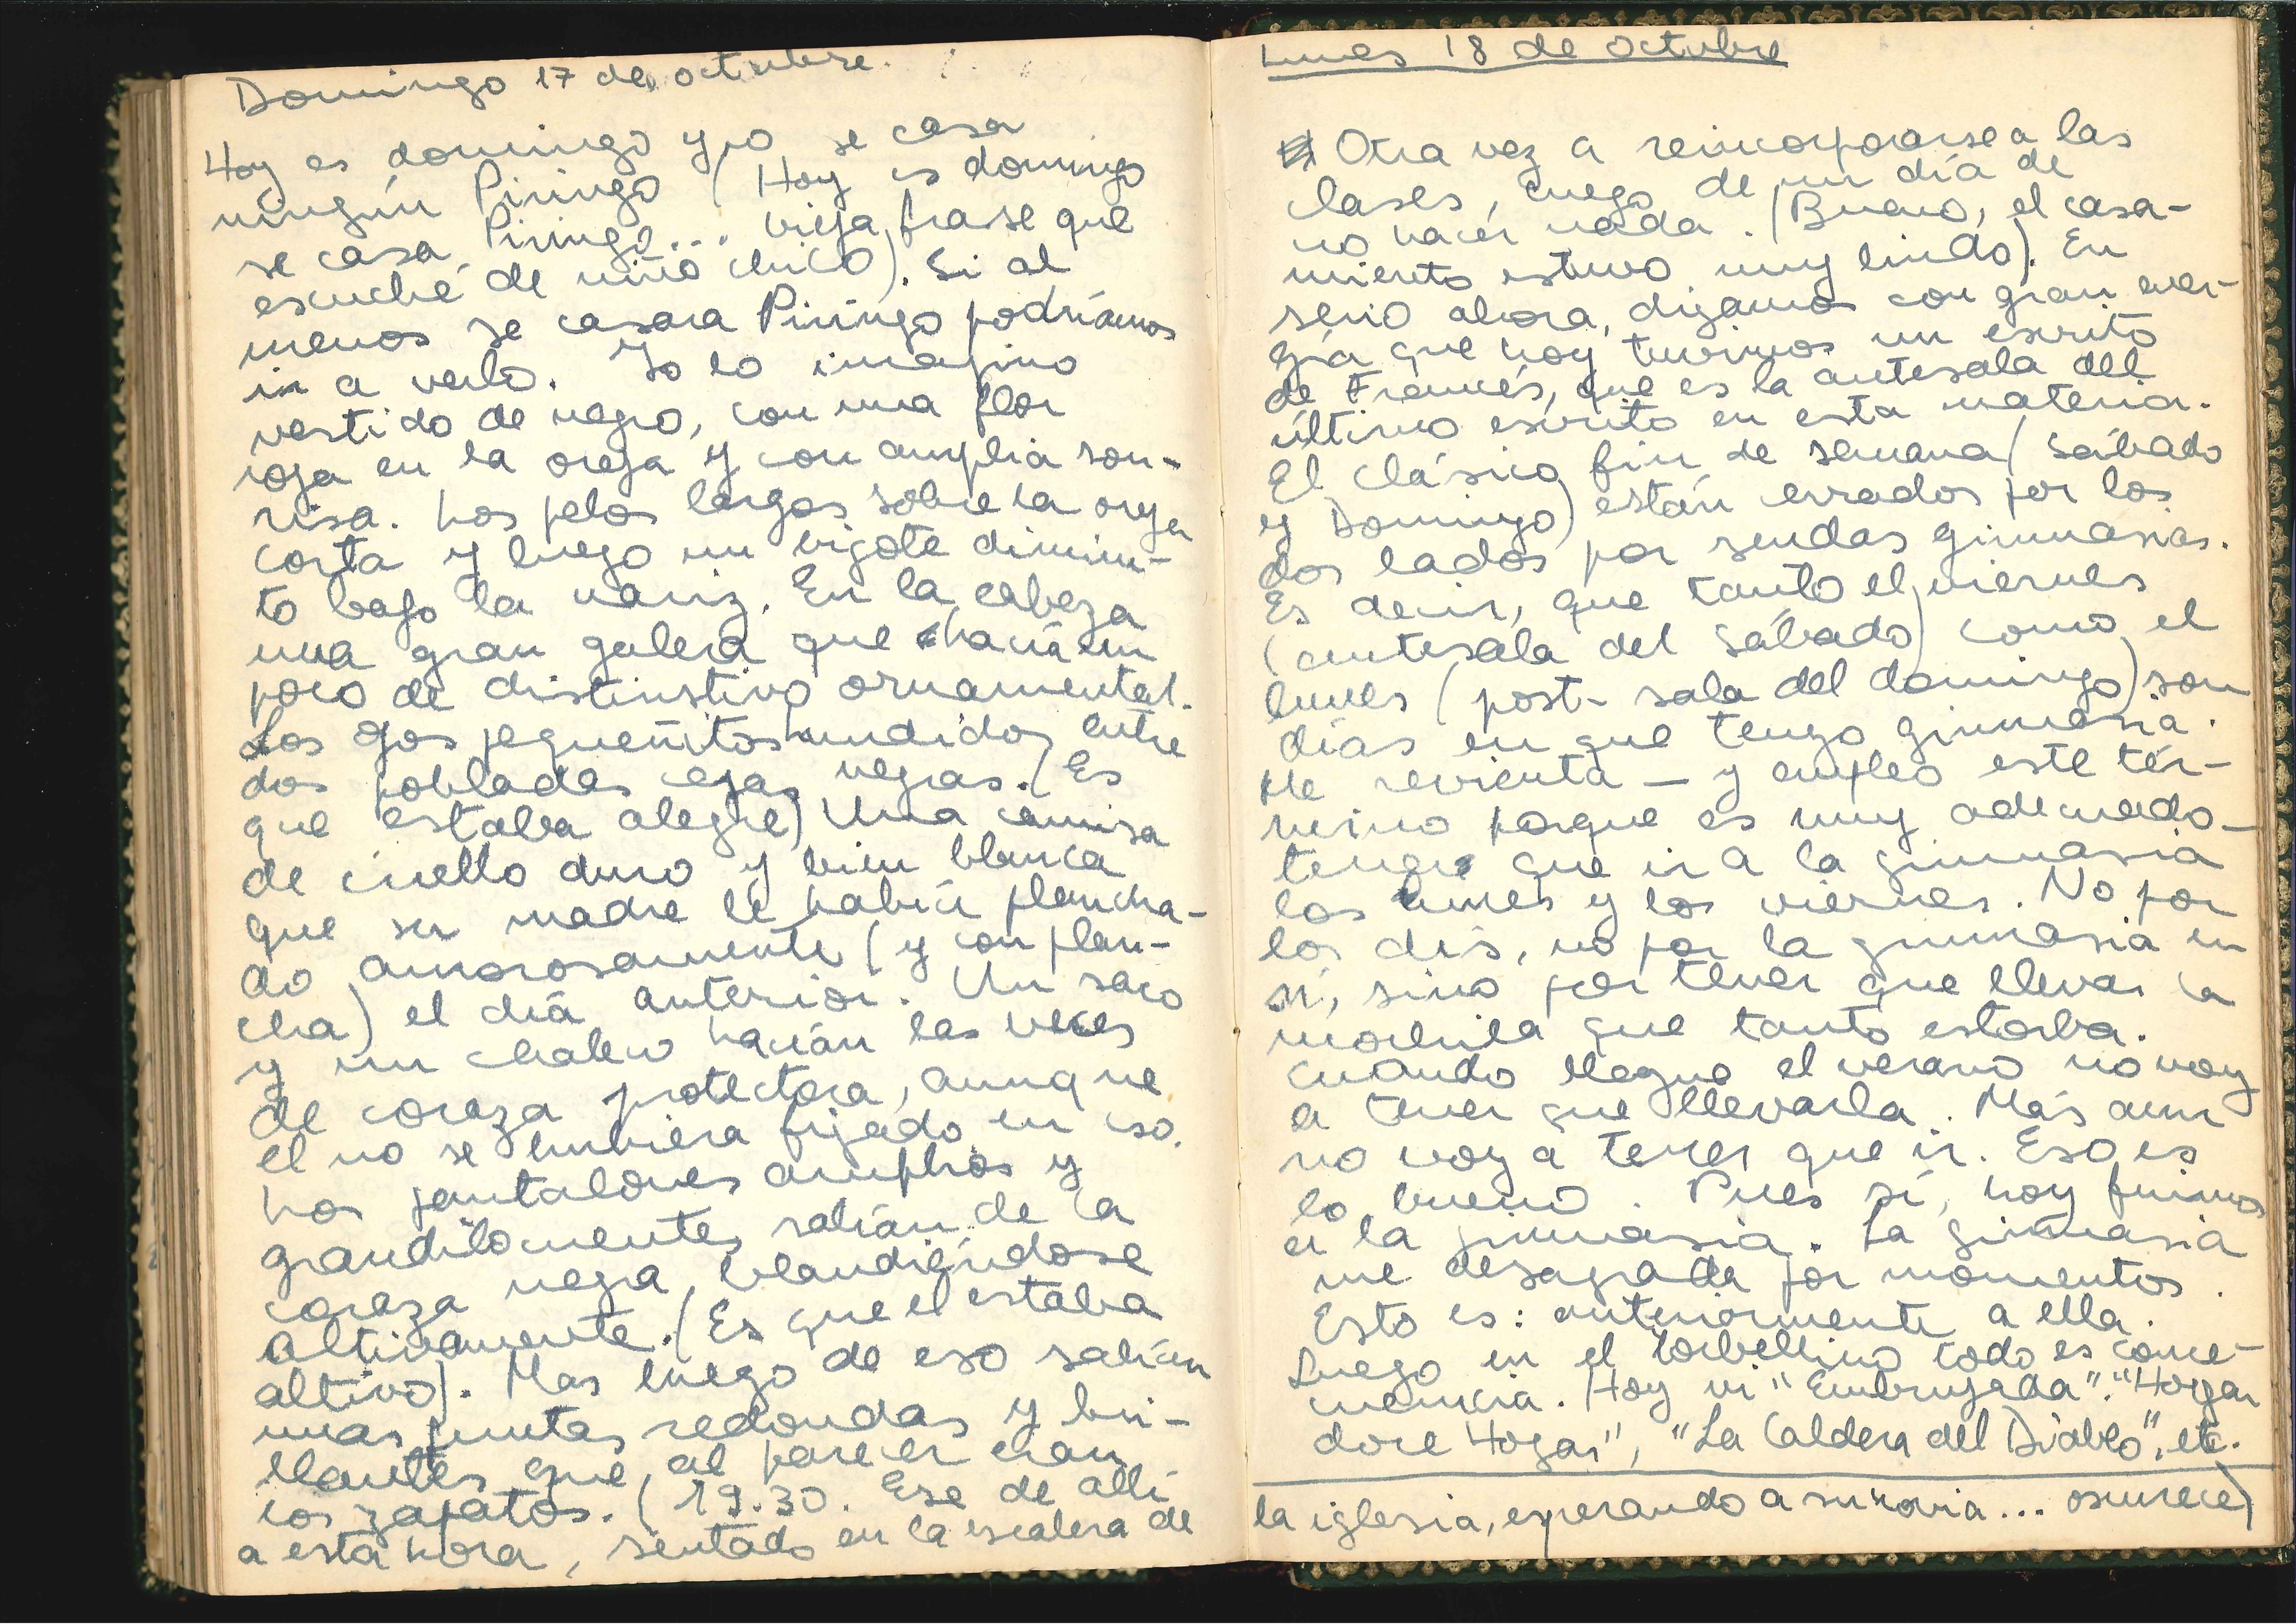 Domingo 17 de octubre.
Hoy es domingo y no se casa
ningún Piringo (Hoy es domingo
se casa Piringo... vieja frase que
escuché de niño chico). Si al
menos se casara Piringo podríamos
ir a verlo. Yo lo imagino
vestido de negro, con una flor
roja en la oreja y con amplia son-
risa. Los pelos largos sobre la oreja
corta y luego un bigote diminu-
to bajo la nariz. En la cabeza
una gran galera que hacía un
poco de distinstivo ornamental.
Los ojos pequeñitos hundidos entre
dos pobladas cejas negras. (Es
que estaba alegre) Una camisa
de cuello duro y bien blanca
que su madre le había plancha-
do amorosamente (y con plan-
cha) el día anterior. Un saco
y un chaleco hacían las veces
de coraza protectora, aunque
el no se hubiera fijado en eso.
Los pantalones amplios y
grandilocuentes salían de la
coraza negra, blandiéndose
altivamente. (Es que el estaba
altivo). Mas luego de eso salían
unas puntas redondas y bri-
llantes que al parecer eran
los zapatos. (19.30. Ese de allí
a esta hora, sentado en la escalera de
Lunes 18 de Octubre
Otra vez a reincorporarse a las
clases, luego de un día de
no hacer nada. (Bueno, el casa-
miento estuvo muy lindo). En
serio ahora, digamos con gran ener-
gía que hoy tuvimos un escrito
de Francés, que es la antesala del
último escrito en esta materia.
El clásico fin de semana (Sábado
y Domingo) están errados por los
dos lados por sendas gimnasias.
Es decir, que tanto el viernes
(antesala del Sábado) como el
lunes (post-sala del domingo) son
días en que tengo gimnasia.
Me revienta — y empleo este tér-
mino porque es muy adecuado —
tener que ir a la gimnasia
los lunes y los viernes. No por
los días, no por la gimnasia en
sí, sino por tener que llevar la
mochila que tanto estorba.
Cuando llegue el verano no voy
a tener que llevarla. Más aun
no voy a tener que ir. Eso es
lo bueno. Pues sí, hoy fuimos
a la gimnasia. La gimnasia
me desagrada por momentos.
Esto es: anteriormente a ella.
Luego en el torbellino todo es
Hoy vi "Embrujada". "Hogar
dulce Hogar", "La Caldera del Diablo", etc.
la iglesia, esperando a su novia... oscurece)